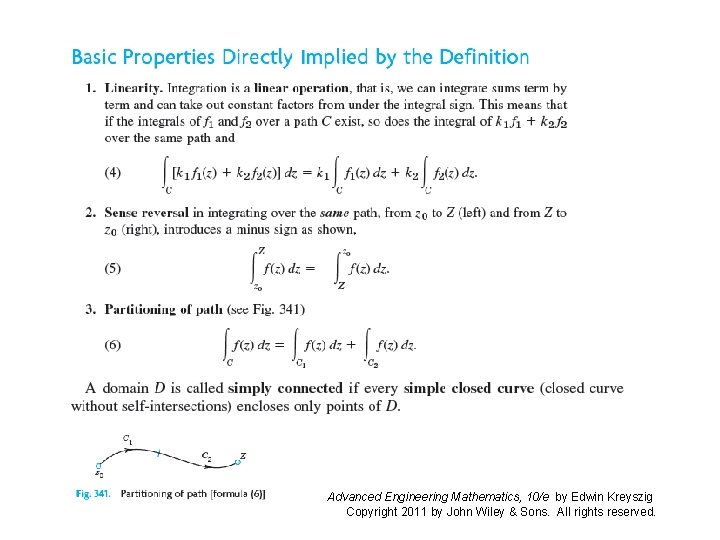 Basic Properties Directly Implied by the Definition
1. Linearity. Integration is a linear operation, that is, we can integrate sums term by
term and can take out constant factors from under the integral sign. This means that
if the integrals of f₁ and f₂ over a path C exist, so does the integral of k₁f₁ + k₂f₂
over the same path and
(4) ∫_C [k₁f₁(z) + k₂f₂(z)] dz = k₁ ∫_C f₁(z) dz + k₂ ∫_C f₂(z) dz.
2. Sense reversal in integrating over the same path, from z₀ to Z (left) and from Z to
z₀ (right), introduces a minus sign as shown,
(5) ∫_{z₀}^{Z} f(z) dz = ∫_{Z}^{z₀} f(z) dz.
3. Partitioning of path (see Fig. 341)
(6) ∫_C f(z) dz = ∫_{C₁} f(z) dz + ∫_{C₂} f(z) dz.
A domain D is called simply connected if every simple closed curve (closed curve
without self-intersections) encloses only points of D.
C₁
C₂ Z
z₀
Fig. 341. Partitioning of path [formula (6)]
Advanced Engineering Mathematics, 10/e by Edwin Kreyszig
Copyright 2011 by John Wiley & Sons. All rights reserved.